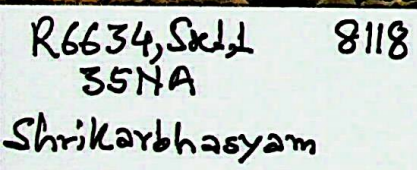 R6634,Sxl,1 8118
35NA
Shrikarbhasyam